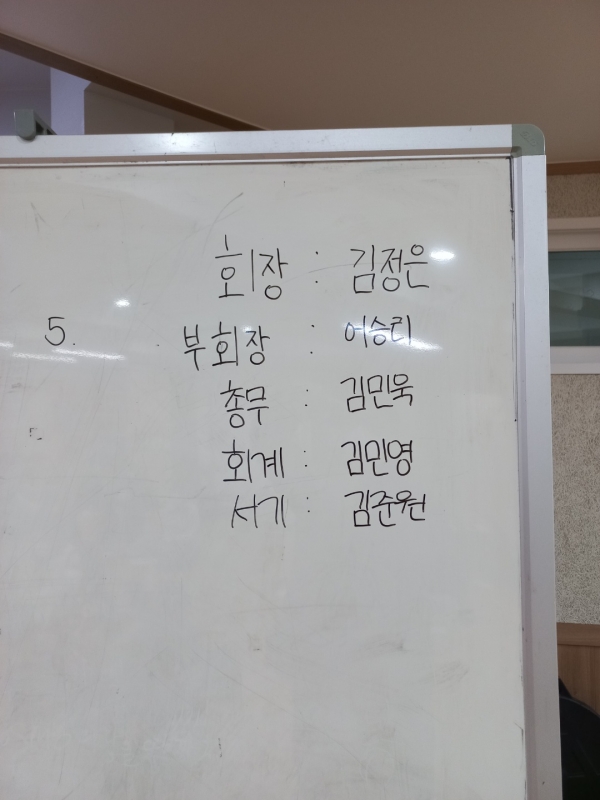 회장 : 김정은
5. 부회장 : 어승리
총무 : 김민욱
회계 : 김민영
서기 : 김준원